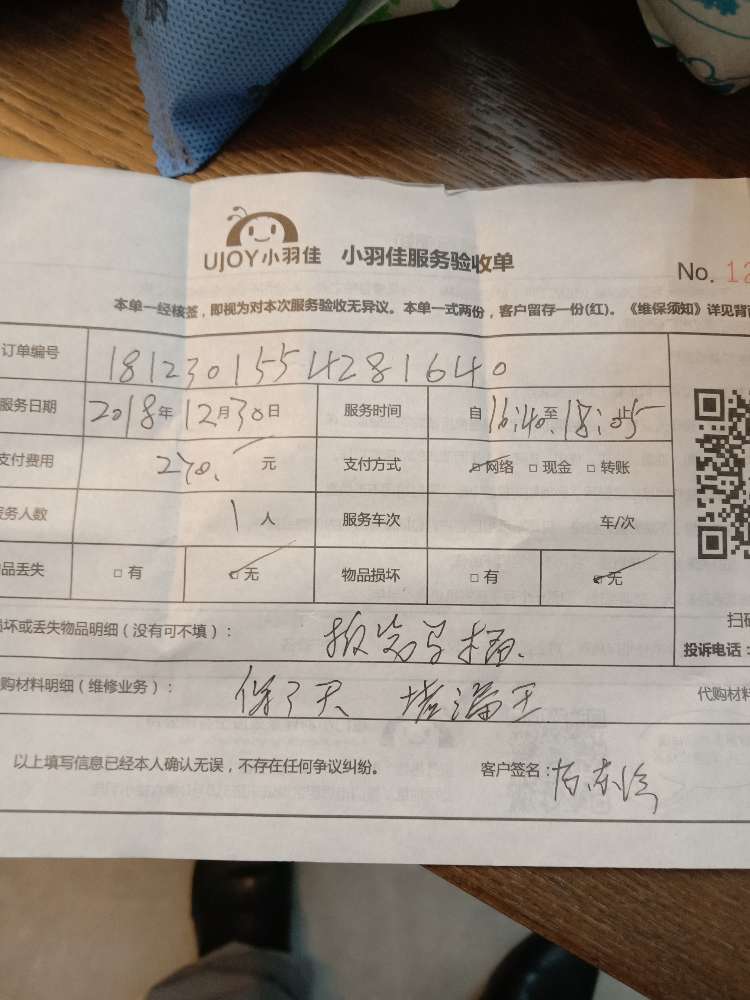 UJOY小羽佳 小羽佳服务验收单
No. 12
本单一经核签，即视为对本次服务验收无异议。本单一式两份，客户留存一份(红)。《维保须知》详见背面
订单编号 1812301554281640
服务日期 2018年12月30日 服务时间 自16:40至18:05止
支付费用 270. 元 支付方式 □网络 □现金 □转账
务人数 1人 服务车次 车/次
品丢失 □有 □无 物品损坏 □有 □无
扫码
坏或丢失物品明细（没有可不填）：
投诉电话：
购材料明细（维修业务）： 堵漏王
代购材料
以上填写信息已经本人确认无误，不存在任何争议纠纷。 客户签名：